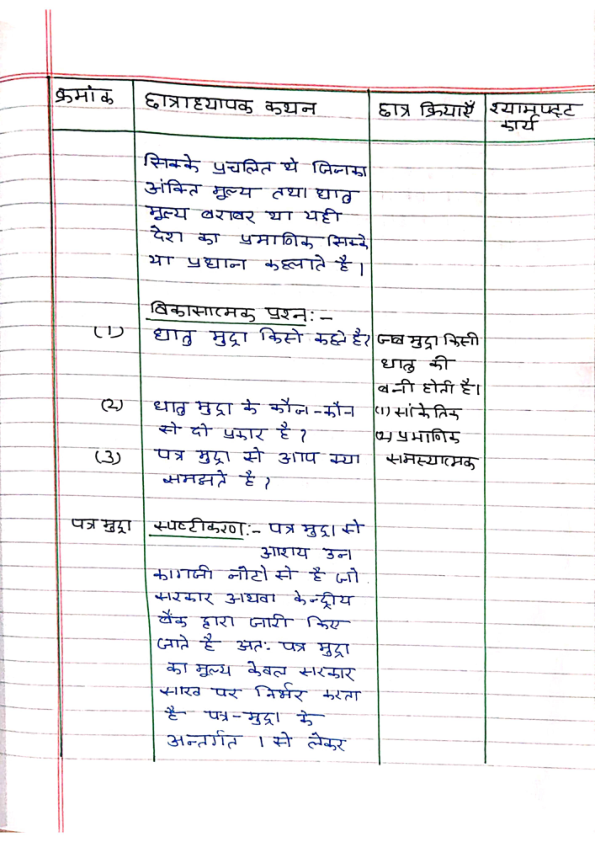 क्रमांक छात्राध्यापक कथन छात्र क्रियाएँ श्यामपट्ट
कार्य
सिक्के प्रचलित थे जिनका
अंकित मूल्य तथा धातु
मूल्य बराबर था यही
देश का प्रमाणिक सिक्के
या प्रधान कहलाते है।
विकासात्मक प्रश्न:-
(1) धातु मुद्रा किसे कहते है? जब मुद्रा किसी
धातु की
बनी होती है।
(2) धातु मुद्रा के कौन-कौन (1) सांकेतिक
से दो प्रकार है? (2) प्रमाणिक
(3) पत्र मुद्रा से आप क्या समस्यात्मक
समझते है?
पत्र मुद्रा स्पष्टीकरण:- पत्र मुद्रा से
आशय उन
कागजी नोटो से है जो
सरकार अथवा केन्द्रीय
बैंक द्वारा जारी किए
जाते है अत: पत्र मुद्रा
का मूल्य केवल सरकार
साख पर निर्भर करता
है पत्र-मुद्रा के
अन्तर्गत 1 से लेकर